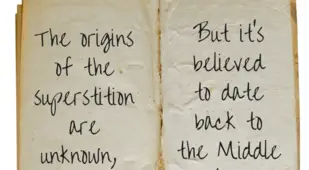 The origins
of the
superstition
are
unknown,
But it's
believed
to date
back to
the Middle